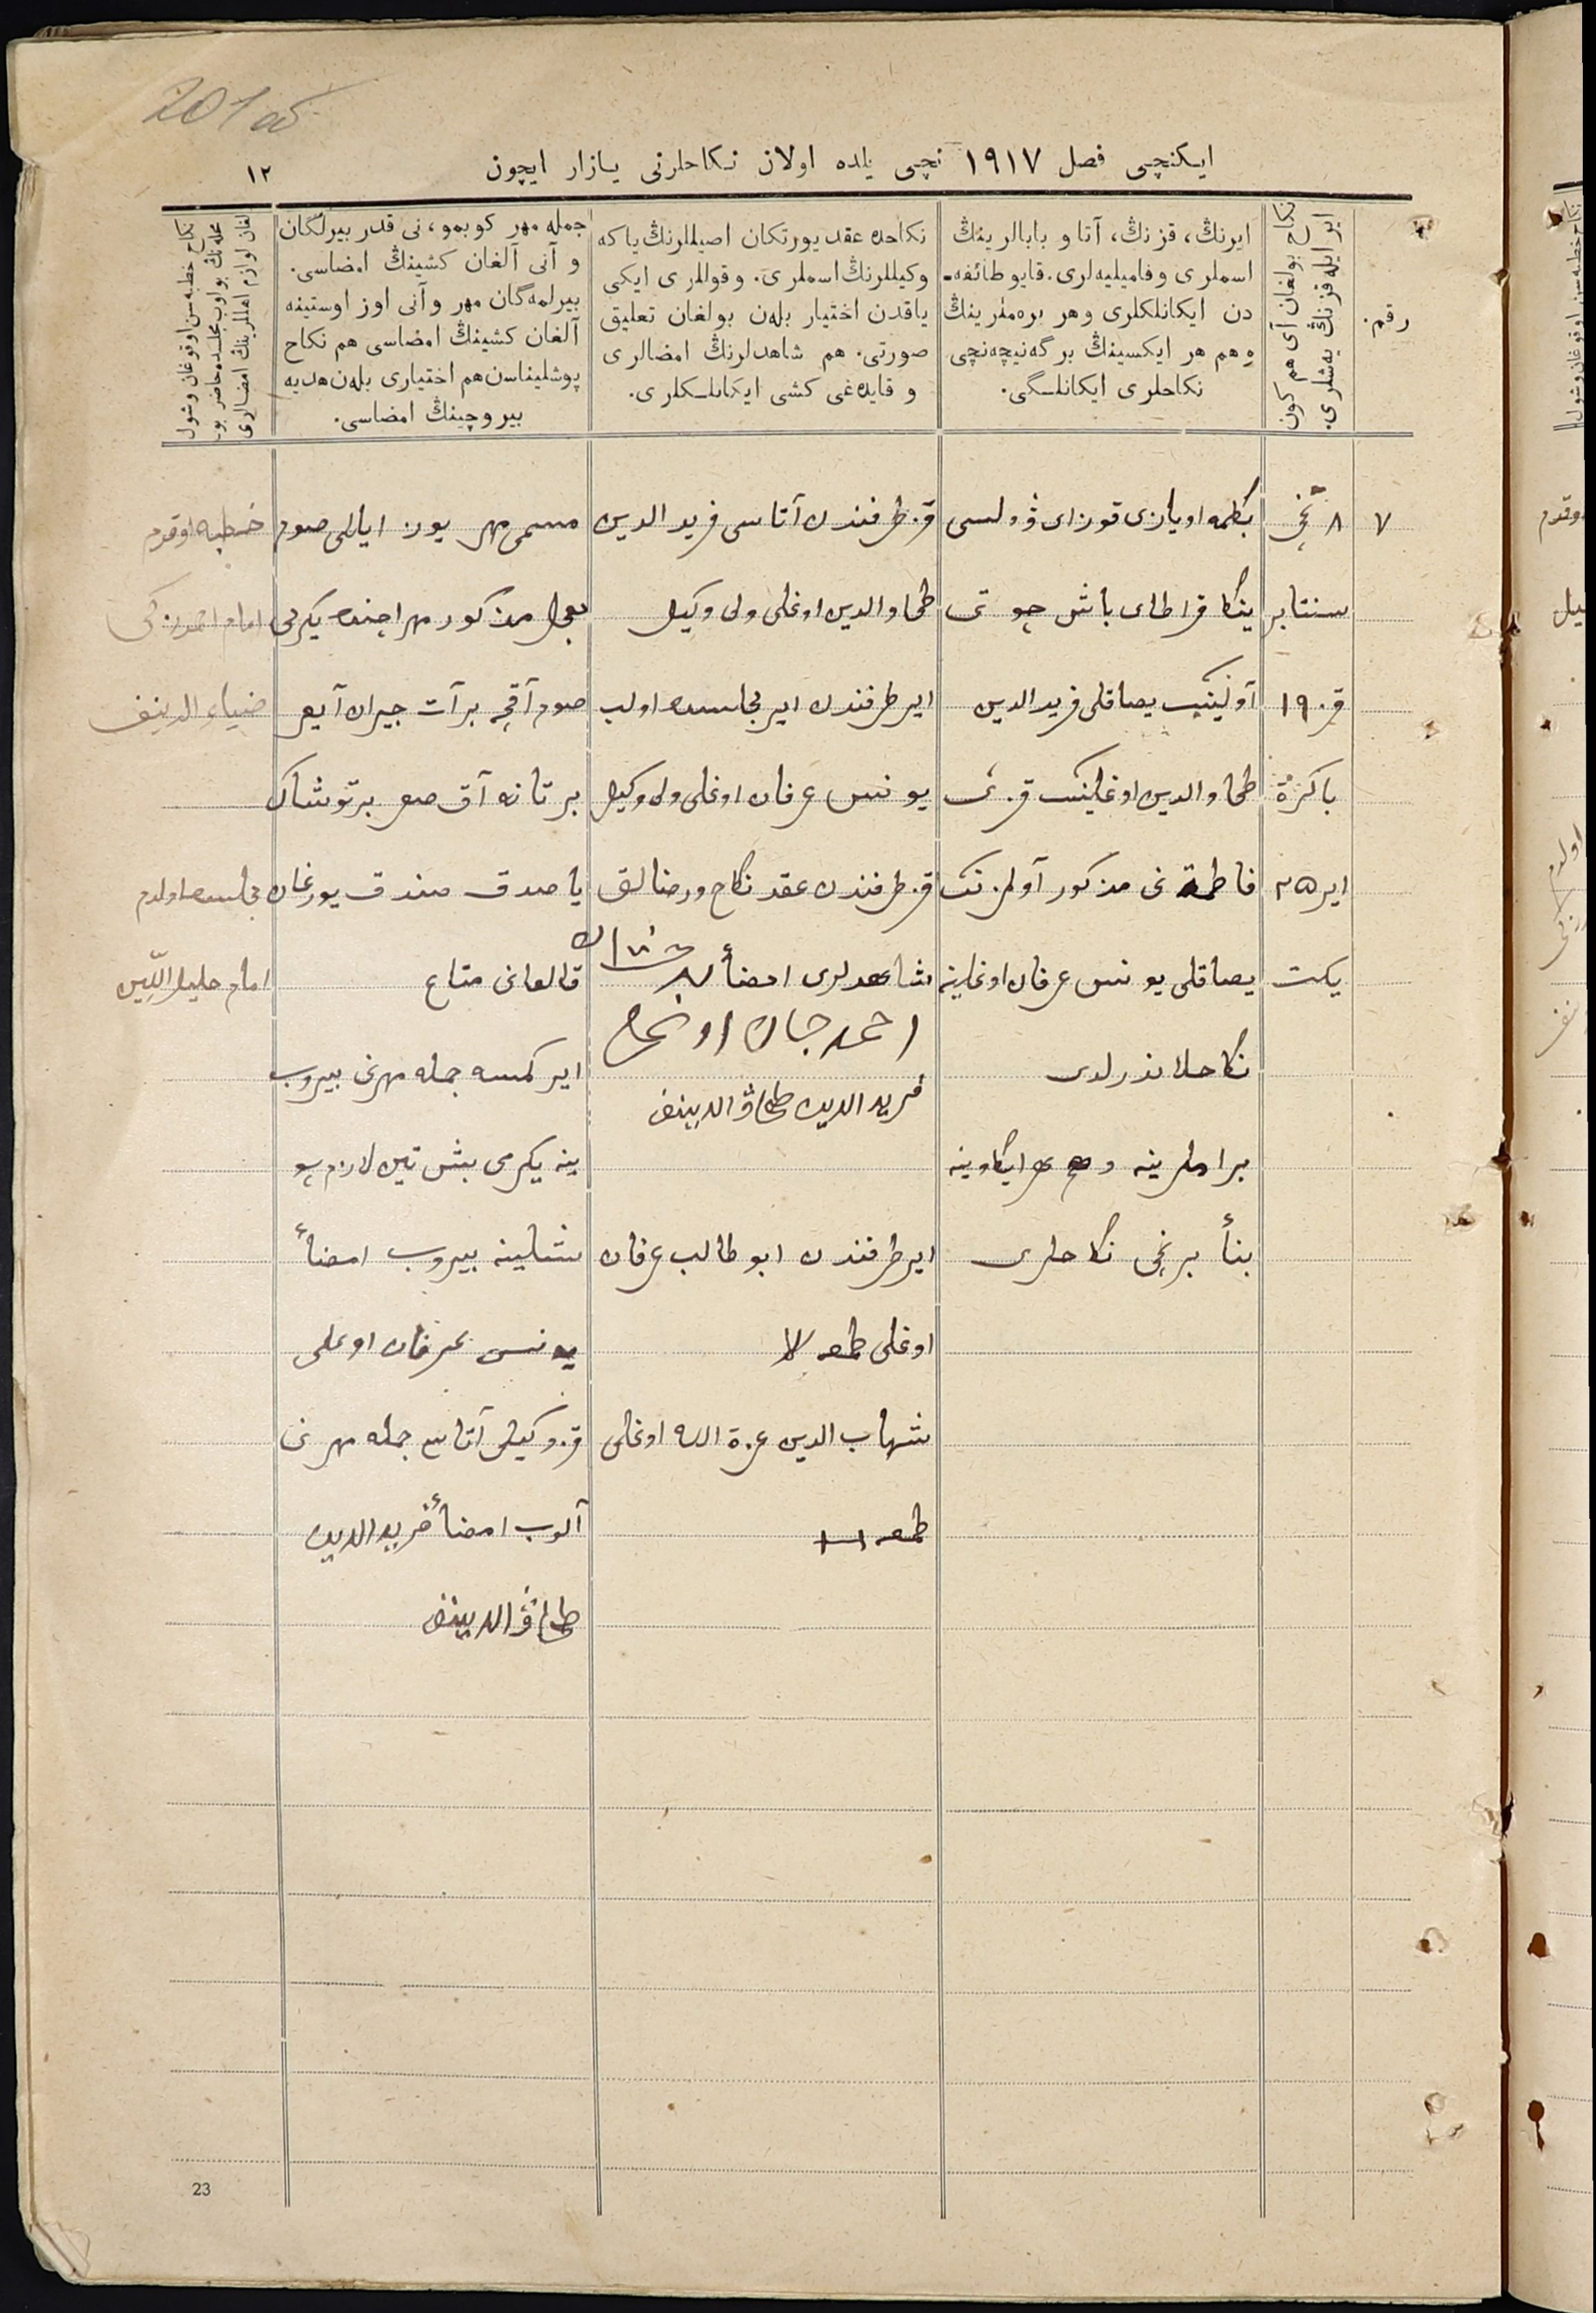 201 об
ایکنچی فصل ۱۹۱۷ نچی یلده اولان نکاحلرنی یازار ایچون
۱۲
رقم.
نکاح بولغان آی هم کون
ایر ایله قزنڭ یەشلری.
ایرنڭ، قزنڭ، آتا و بابالرینڭ
اسملری و فامیلیه‌لری. قایو طائفه-
دن ایکانلکلری وهر بره‌مثرینڭ
هم هر ایکسینڭ برگه نیچه‌نچی
نکاحلری ایکانلـگی.
نکاحده عقد یورتکان اصیللرنڭ یاکه
وکیللرنڭ اسملری. و قوللری ایکی
یاقدن اختیار بلەن بولغان تعلیق
صورتی. هم شاهدلرنڭ امضالری
و قایده‌غی کشی ایکانلـکلری.
جمله مهر کوبمو، نی قدر بیرلگان
و آنی آلغان کشینڭ امضاسی.
بیرلمه‌گان مهر و آنی اوز اوستینه
آلغان کشینڭ امضاسی هم نکاح
پوشلیناسن هم اختیاری بلەن هدیه
بیروچینڭ امضاسی.
نکاح خطبه‌سن اوقوغان وشول
محله‌نڭ بولوب مجلسده حاضر بو-
لغان لوازم اهللرینڭ امضالری
۷
۸ نچی
سنتابر
قز ۱۹
باکرة
ایر ۲۵
یکت
بگلمه اویازی قوزای ڤولسی
ینکا قراطای باش چوتی
آولینیڭ یصاقلی فرید الدین
طحاو الدین اوغلینڭ قزی
فاطمة نی مذکور آولنڭ
یصاقلی یونس عرفان اوغلینه
نکاحلاندرلدی
برابرلرینه وهم هر ایکاوینه
بناً برنچی نکاحلری
قز طرفندن آتاسی فرید الدین
طحاو الدین اوغلی ولی وکیل
ایر طرفندن ایر مجلسده اولب
یونس عرفان اوغلی ولی وکیل
قز طرفندن عقد نکاح ورضالق
شاهدلری امضأ
احمد جان
فرید الدین طحاۋالدینف
ایر طرفندن ابو طالب عرفان
اوغلی طمغه
شهاب الدین عزة الله اوغلی
طمغه
مسمی مهر یوز ایللی صوم
معجل مذکور مهر اچنده یکرمی
صوم آقچه بر آت جیران آیغر
بر تانه آق صیر بر توشاک
یاصدق صندق یورغان
قالغانی متاع
ایر کمسه جمله مهرنی بیروب
ینه یکرمی بش تین لازم
شلینه بیروب امضأ
یونس عرفان اوغلی
قز وکیلی آتاسی جمله مهرنی
آلوب امضأ فرید الدین
طحاۋالدینف
خطبه اوقدم
امام
ضیاء الدینف
مجلسده اولدم
امام جلیل الدین
23